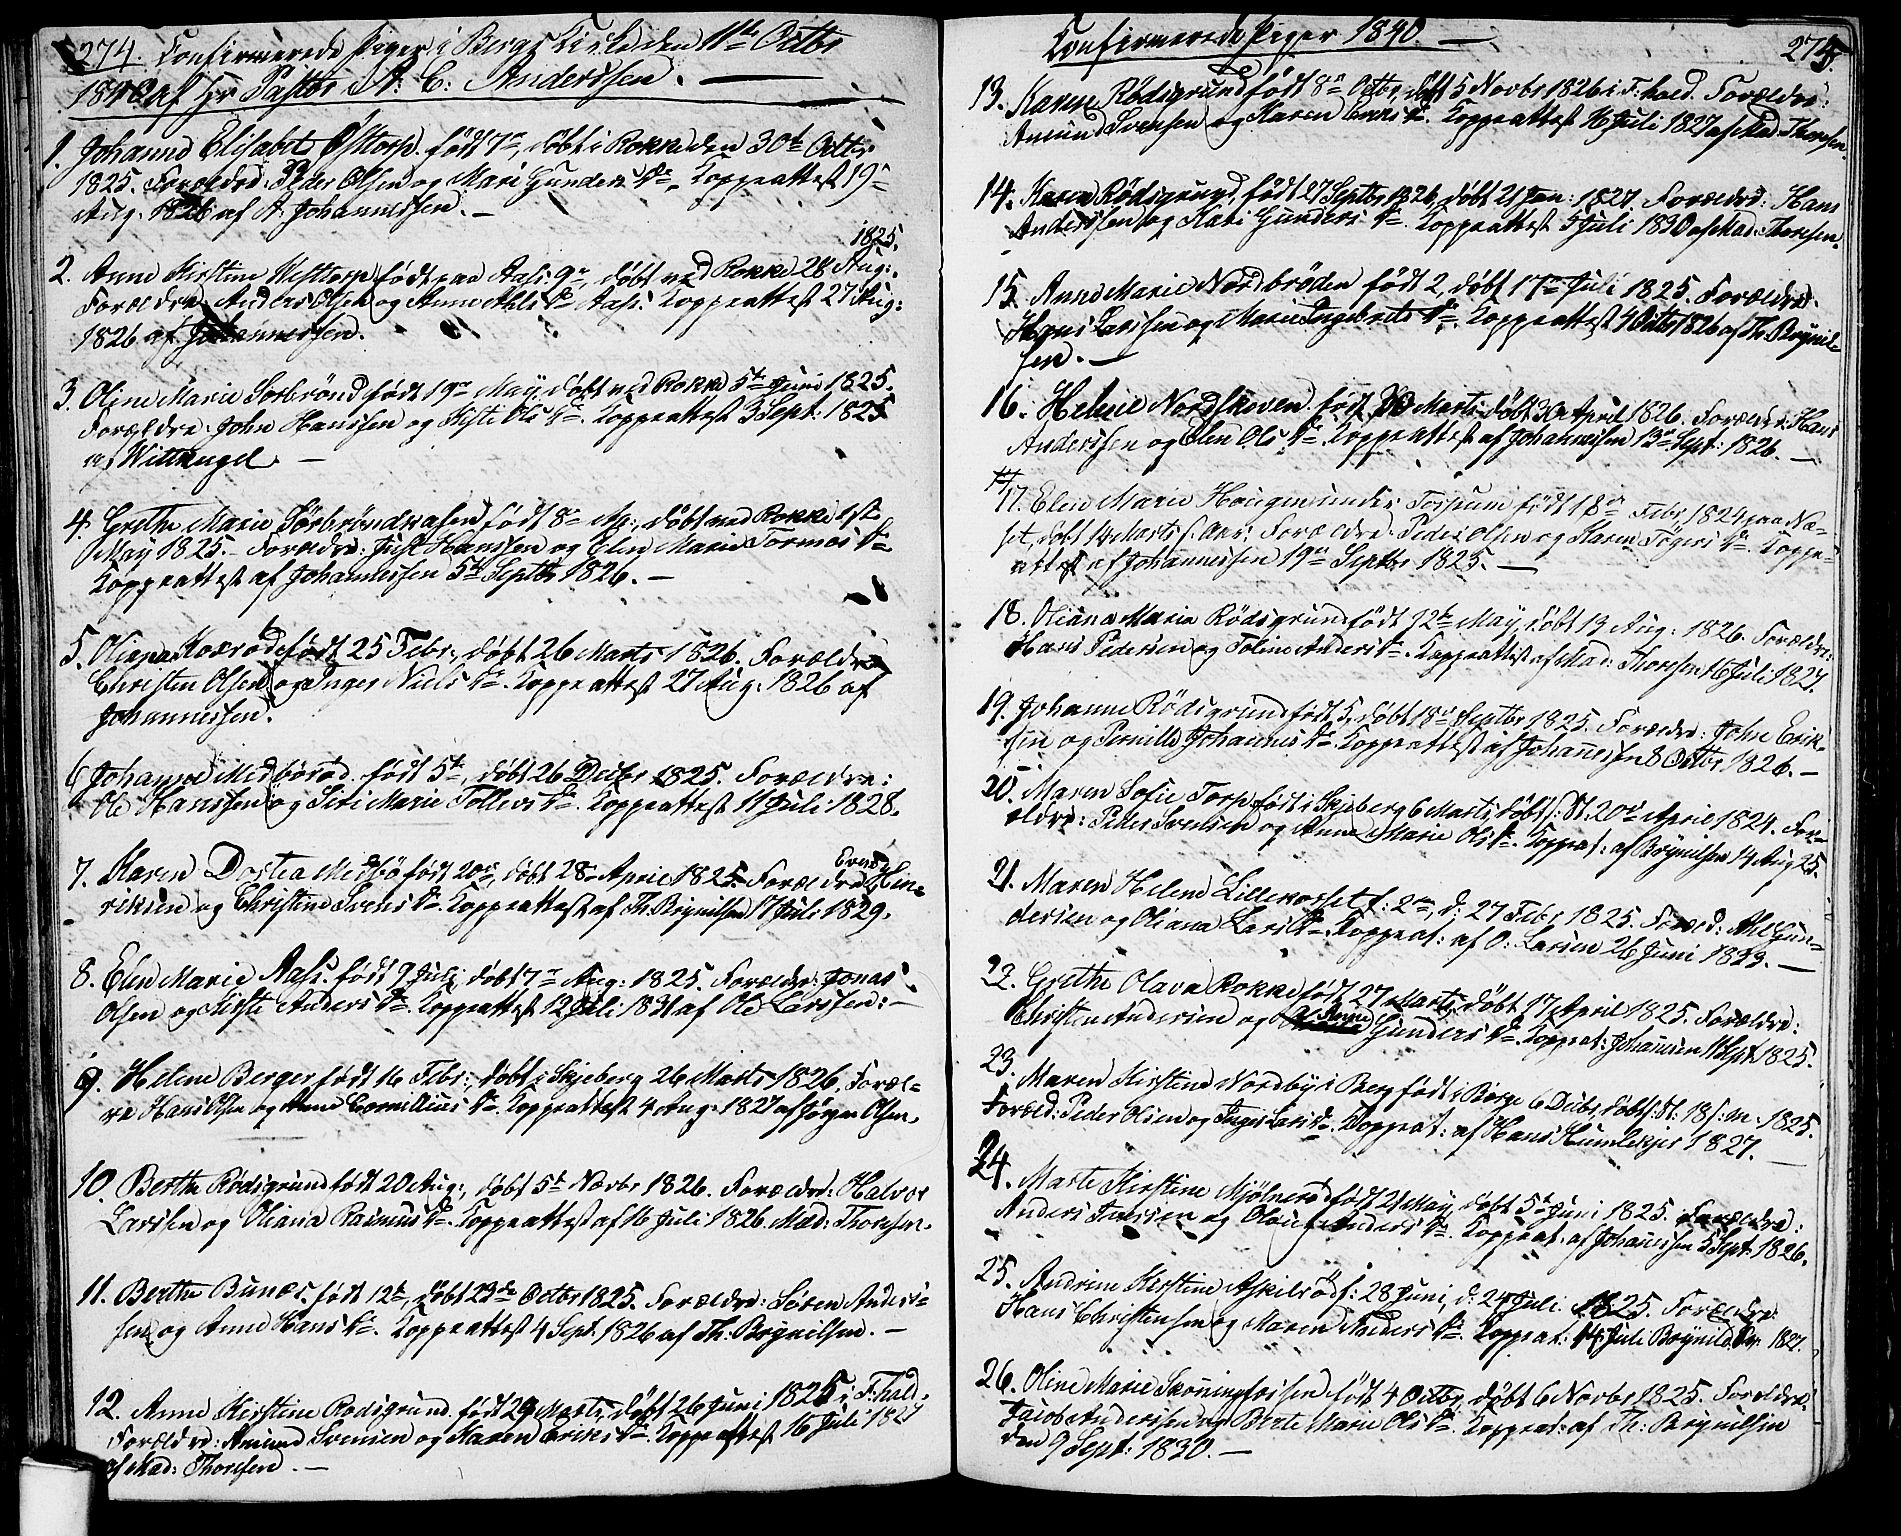 274. Confirmerede Piger i Bergs Kirke den 11te Octbr
1840 af Hr Pastor A: C: Anderssen.
1. Johanne Elisabet Østorp. født 7de, døbt i Rokke den 30te Octbr
1825. Forældre: Peder Olsen og Mari Gunders Dr. Koppeattest 19de
Aug. 1826 af A. Johannessen. —
1825.
2. Anne Kirstine Westtorp født paa Aass 9de, døbt ved Rokke 28 Aug:
Forældre Anders Olsen og Anne Ahls Dr Aass. Koppeattest 27 Aug:
1826 af Johannessen.
3. Oline Marie Sørbrönd født 19de May, døbt ved Rokke 5te Juni 1825.
Forældre: John Hanssen og Kisti Ols Dr. Koppeattest 3 Sept: 1825
af Wittrugel. —
4. Grethe Marie Sörbröndsaasen født 8de Ap:, døbt ved Rokke 1ste
May 1825. — Forældre: Juli Hanssen og Elen Marie Tormos Dr
Koppeattest af Johannessen 5te Septbr 1826. —
5. Oliana født 25 Febr:, døbt 26 Marts 1826. Forældre
Christen Olsen og Inger Niels Dr. Koppeattest 27 Aug: 1826 af
Johannessen.
6 Johanne Medbörød. født 5te, døbt 26 Decbr 1825. Forældre:
Ole Hanssen og Siri Marie Tollevs Dr. Koppeattest 11 Juli 1828.
7. Karen Dortea Medbö født 20de, døbt 28de April 1825. Forældre Hin-
riksen og Christine Svens Dr. Koppeattest af Th. Brynilsen 17 Juli 1829.
8. Elen Marie Aass. født 9 Juli, døbt 7de Aug: 1825. Forældre: Jonas
Olsen og Kirsti Anders Dr. Koppeattest 12 Juli 1831 af Ole Larssen: —
9. Helene Berger født 16 Febr:, døbt i Skjeberg 26 Marts 1826. Foræl-
re Hans Olsen og Anne Cornelius Dr. Koppeattest 4 Aug: 1827 af Jörgen Olsen.
10. Berthe Rödsgrund født 20 Aug:, døbt 5te Novbr 1826. Forældre: Halvor
Larssen og Oliana Rasmus Dr. Koppeattest af 16 Juli 1826. Mad: Thoresen.
11. Berthe Bunæs. født 12te, døbt 23de Octbr 1825. Forældre: Sören Anders-
sen og Anne Hans Dr. Koppeattest 4 Sept. 1826 af Th: Brynilsen. —
12. Anne Kirstine Rödsgrund. født 29 Marts, døbt 26 Juni 1825 i F. hald.
Forældre: Amund Svensen og Karen Eriks Dr. Koppeattest 16 Juli 1827
af Mad: Thoresen. —
Confirmerede Piger 1840. —
275.
13. Karen Rödsgrund født 8de Octbr, døbt 5 Novbr 1826 i F. hald. Forældre:
Amund Svensen og Karen Eriks Dr. Koppeattest 16 Juli 1827 af Mad. Thoresen.
14. Karen Rödsgrund, født 27 Septbr 1826, døbt 21 Jan: 1827. Forældre: Hans
Anderssen og Kari Gunders Dr. Koppeattest 5 Juli 1830 af Mad. Thoresen.
15. Anne Marie Nordbröden født 2, døbt 17de Juli 1825. Forældre
Hans Larssen og Marie Ingebrets Dr. Koppeattest 4 Octbr 1826 af Th. Brynil-
sen. —
16. Helene Nordskoven født Marts, døbt 30 April 1826. Forældre: Hans
Anderssen og Elen Ols Dr. Koppeattest af Johannessen 13de Sept: 1826. —
17. Elen Marie Haugen under Torpum født 18de Febr, 1824 paa Næ-
set, døbt 14 Marts s. Aar: Forældre: Peder Olsen og Karen Tögers Dr. Koppe-
attest af Johannessen 19de Septbr 1825. —
18. Oliana Maria Rödsgrund født 12te May, døbt 13 Aug: 1826. Forældre:
Hans Pedersen og Toline Anders Dr. Koppeattest af Mad: Thoresen 16 Juli 1827.
19. Johanne Rödsgrund født 5, døbt 18de Septbr 1825. Forældre: John Erik-
sen og Pernille Johannes Dr. Koppeattest af Johanessen 8 Octbr 1826. —
20. Maren Sofie Torp født i Skjeberg 6 Marts, døbt s: St: 20de April 1824. For-
ældre: Peder Svensen og Anne Marie Ols Dr. Koppeat: af Brynilsen 14 Aug 25.
21. Maren Helene Lillekasset f: 2den, d: 27 Febr 1825. Foræld: Abel Gun-
dersen og Oliana Lars Dr. Koppeat: af O: Larsen 26 Juni 1833. —
22. Grethe Olava Rokke født 27 Marts, døbt 17 April 1825. Forældre:
Christen Andersen og Anne Gunders Dr. Koppeat: Johannesen 11 Sept. 1825.
23. Maren Kirstine Nordby i Berg født i Borge 6 Decbr, døbt s: St: 18 s: m: 1825.
Foræld: Peder Olsen og Inger Lars Dr. Koppeat: af Hans Humlekjær 1827.
24. Marte Kirstine Mjölneröd født 21 May, døbt 5te Juni 1825. Forældre:
Anders Hanssen og Oloug Anders Dr. Koppeat: af Johanessen 5 Sept. 1826.
25. Andrine Kirstine Askilsröd f: 28 Juni, d: 24 Juli 1825. Forældre:
Hans Christensen og Maren Anders Dr. Koppeat: 14 Juli Brynildsen 1827.
26. Oline Marie Skonningfossen født 4 Octbr, døbt 6 Novbr 1825. Forældre
Jacob Anderssen og Berte Marie Ols Dr. Koppeat: af Th: Brynilsen
den 9 Sept: 1830. —